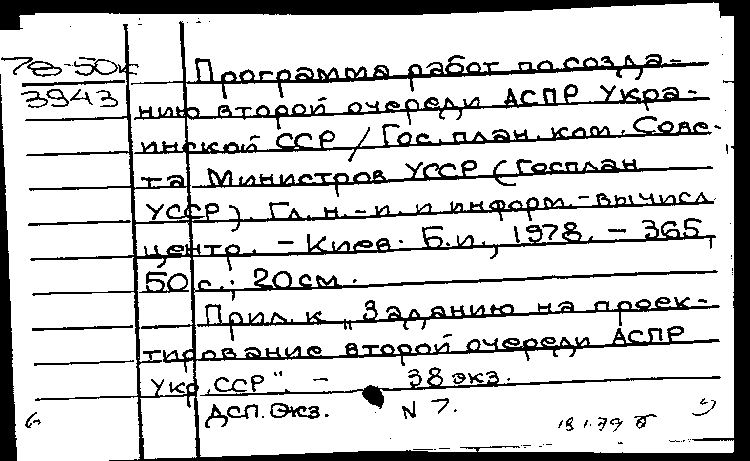 78-50к
3943
Программа работ по созда-
нию второй очереди АСПР Укра-
инской ССР / Гос. план. ком. Сове-
та Министров УССР (Госплан
УССР). Гл. н.-и. и информ.-вычисл
центр. - Киев. Б.и., 1978. - 365,
50 с.; 20 см.
Прил. к "Заданию на проек-
тирование второй очереди АСПР
Укр. ССР". - 38 экз.
ДСП. Экз. N 7.
18.1.79